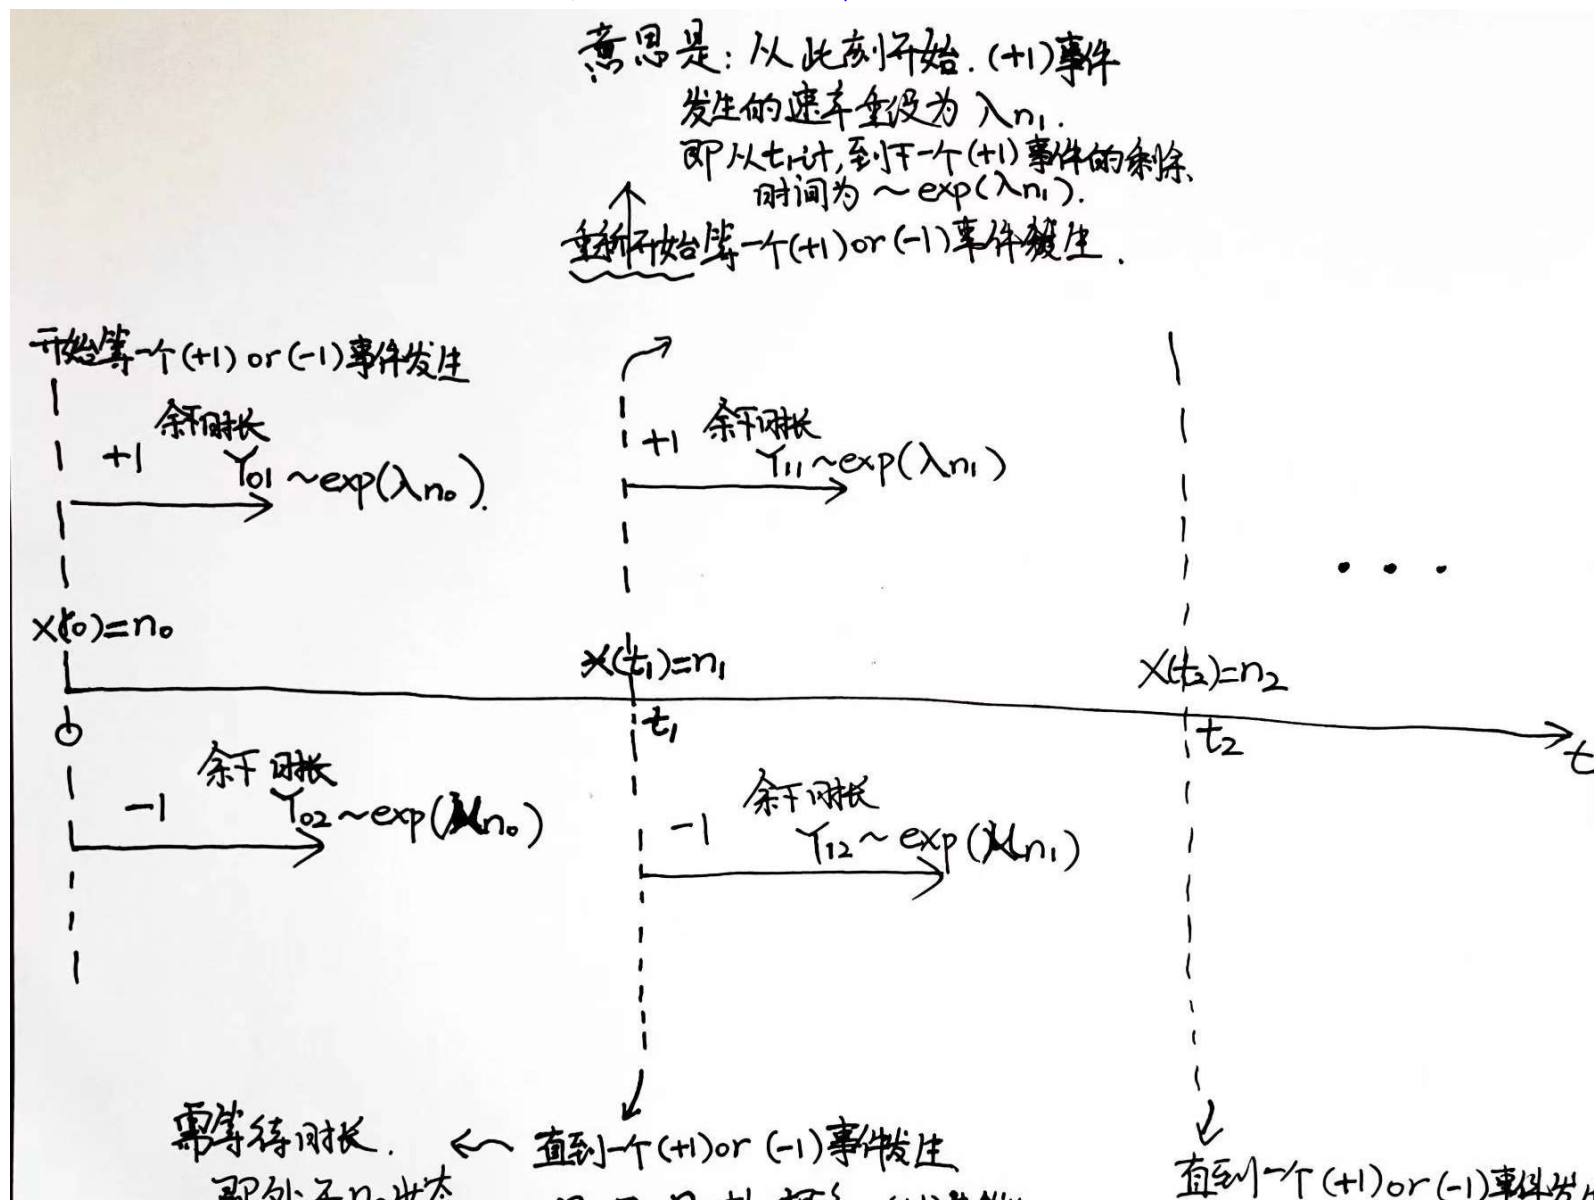 意思是：从此刻开始.(+1)事件
发生的速率重设为 λn₁.
即从t₁计,到下一个(+1)事件的剩余
时间为 ~exp(λn₁).
重新开始等一个(+1)or(-1)事件发生.
开始等一个(+1)or(-1)事件发生
余下时长
+1 Y₀₁~exp(λn₀).
余下时长
+1 Y₁₁~exp(λn₁)
...
X(t₀)=n₀
X(t₁)=n₁
X(t₂)=n₂
0
t₁
t₂
t
余下时长
-1 Y₀₂~exp(μn₀)
余下时长
-1 Y₁₂~exp(μn₁)
需等待时长.
直到一个(+1)or(-1)事件发生
即处于n₀状态
直到一个(+1)or(-1)事件发